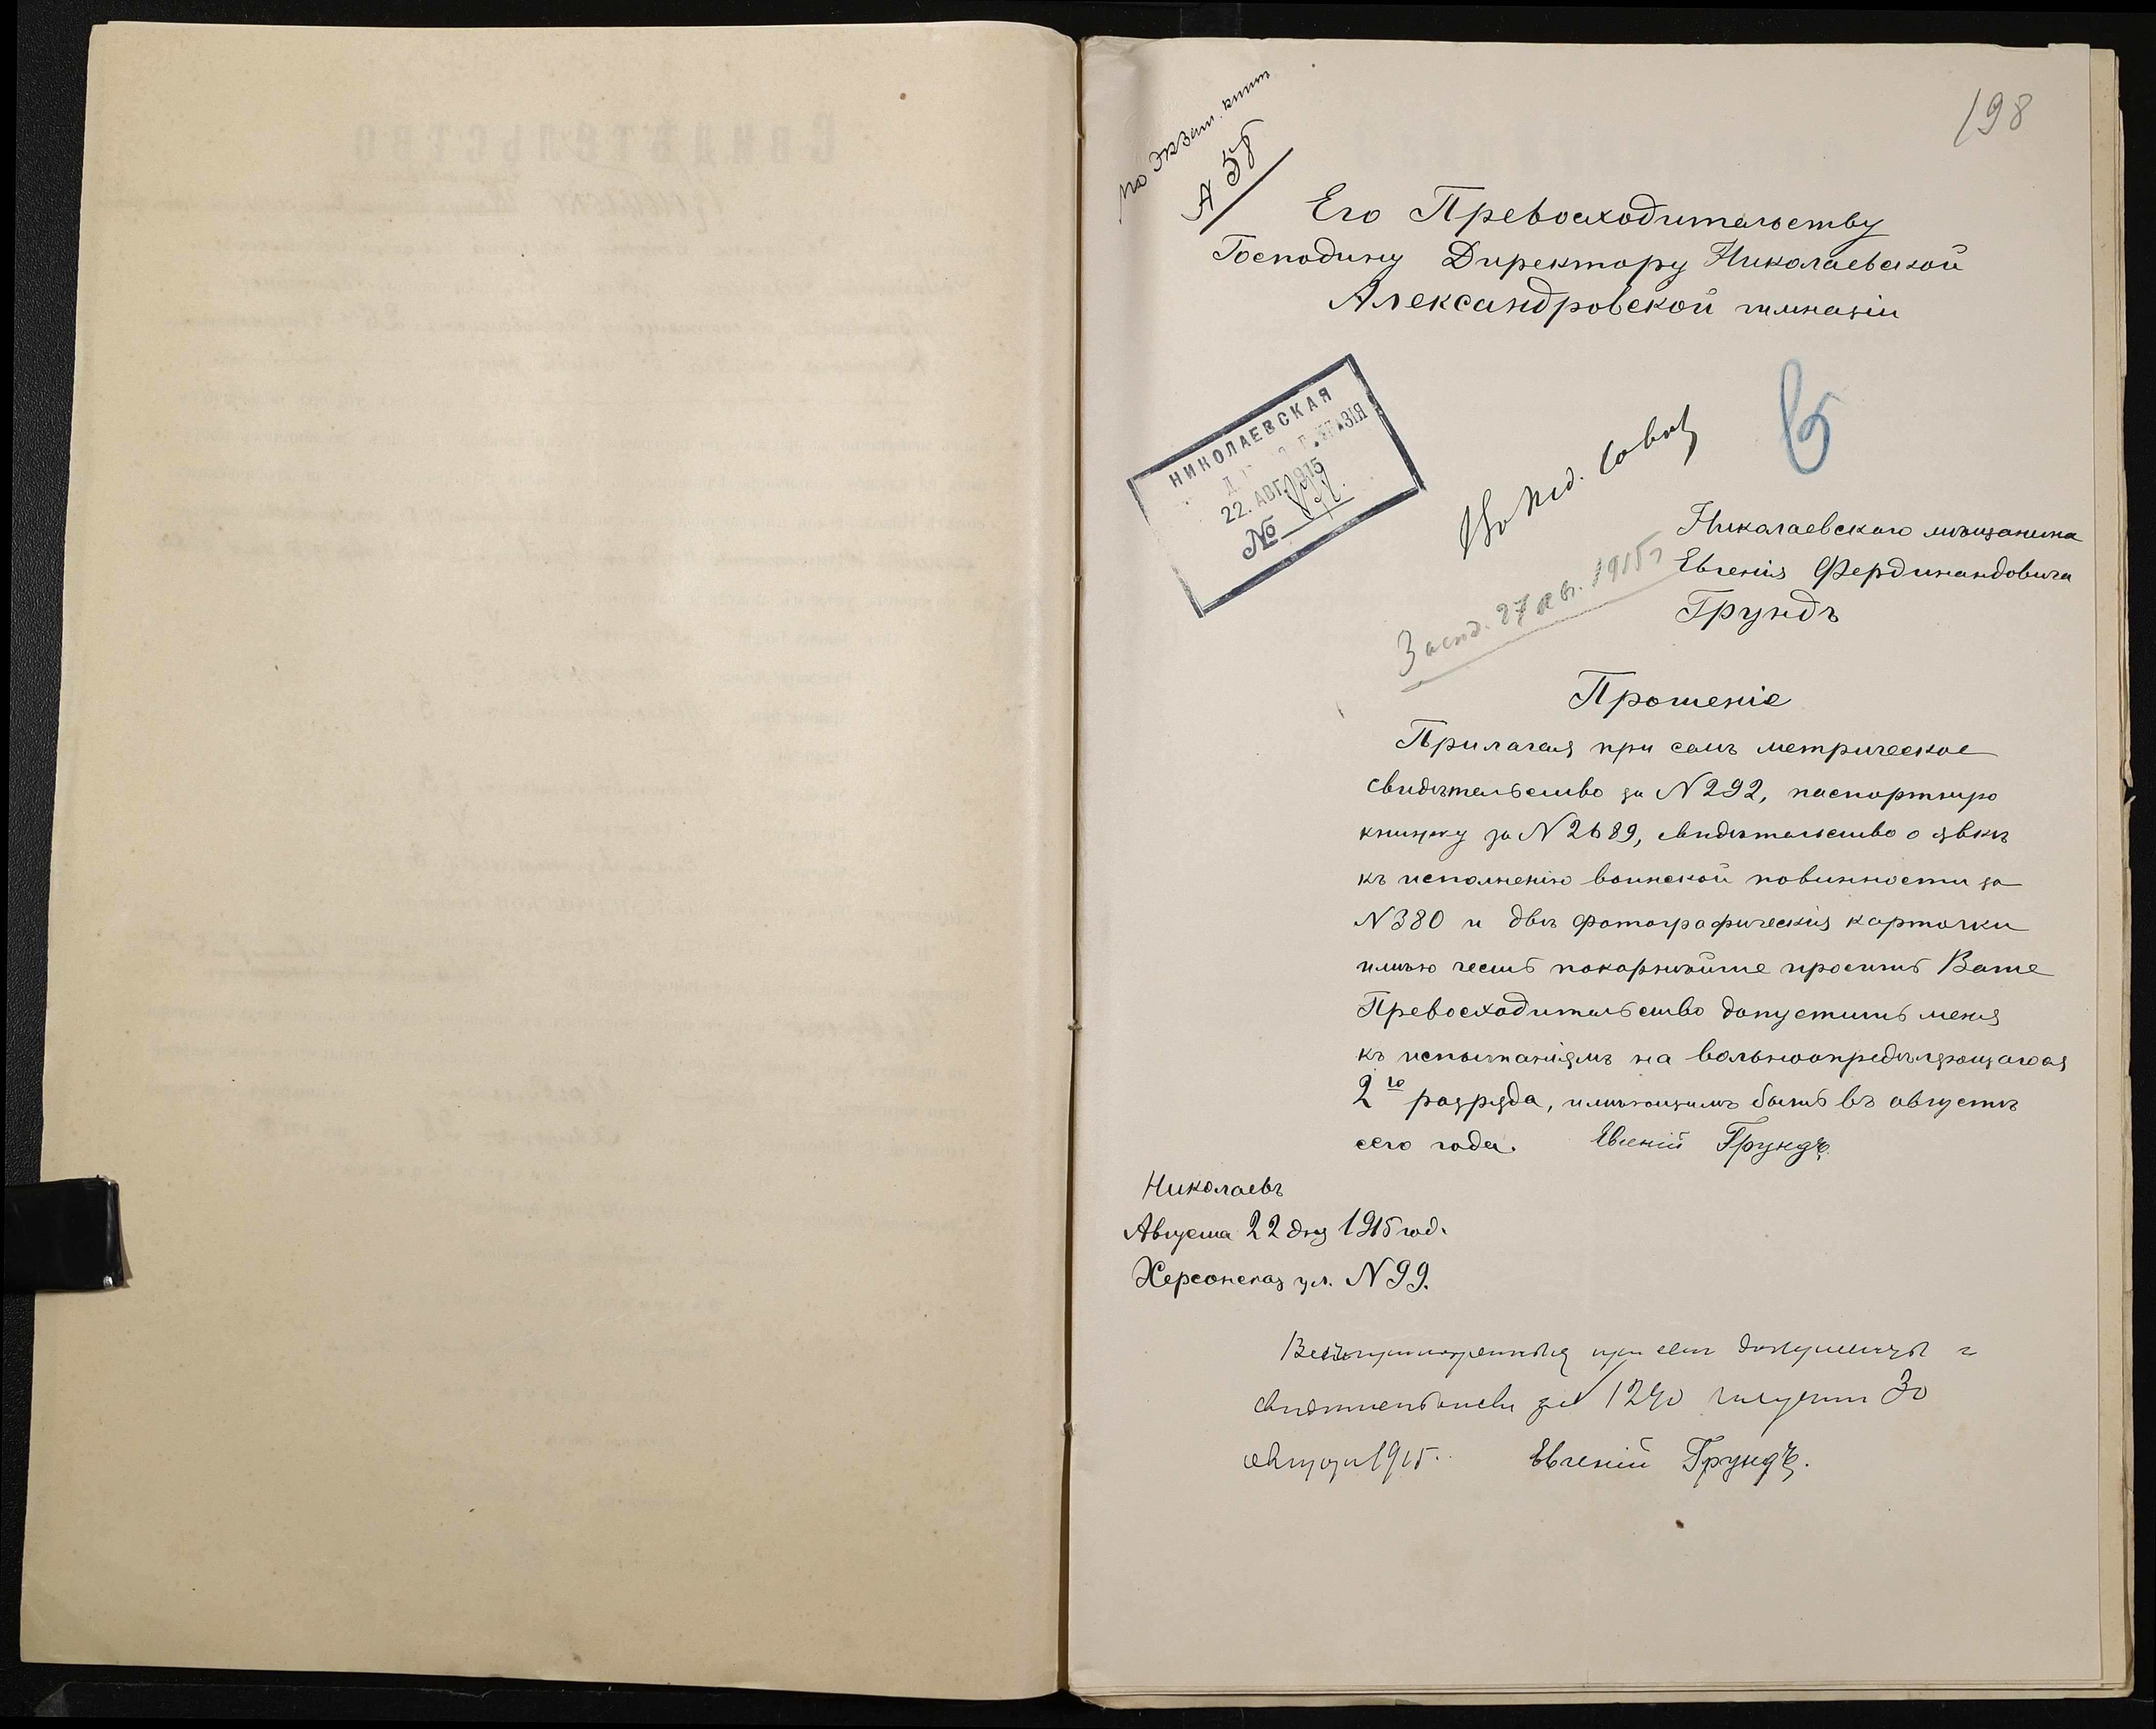 198
по Экзам. книг
А 58
Его Превосходительству
Господину Директору Николаевской
Александровской гимназіи
НИКОЛАЕВСКАЯ
22. АВГ. 1915
№
Въ Пед. Совѣтъ
Засѣд. 27 Авг. 1915 г
Николаевского мѣщанина
Евгенія Фердинандовича
Грундъ
Прошеніе
Прилагая при семъ метрическое
свидѣтельство за N 292, паспортную
книжку за N 2689, свидѣтельство о явкѣ
къ исполненію воинской повинности за
N 380 и двѣ фотографическія карточки
имѣю честь покорнѣйше просить Ваше
Превосходительство допустить меня
къ испытаніямъ на вольноопредѣляющагося
2го разряда, имѣющимъ быть въ августѣ
сего года. Евгеній Грундъ.
Николаевъ
Августа 22 дня 1915 год.
Херсонская ул. N 99.
при семъ документы и
свидѣтельство за № 1240 получилъ 30
августа 1915. Евгеній Грундъ.
СВИДѢТЕЛЬСТВО